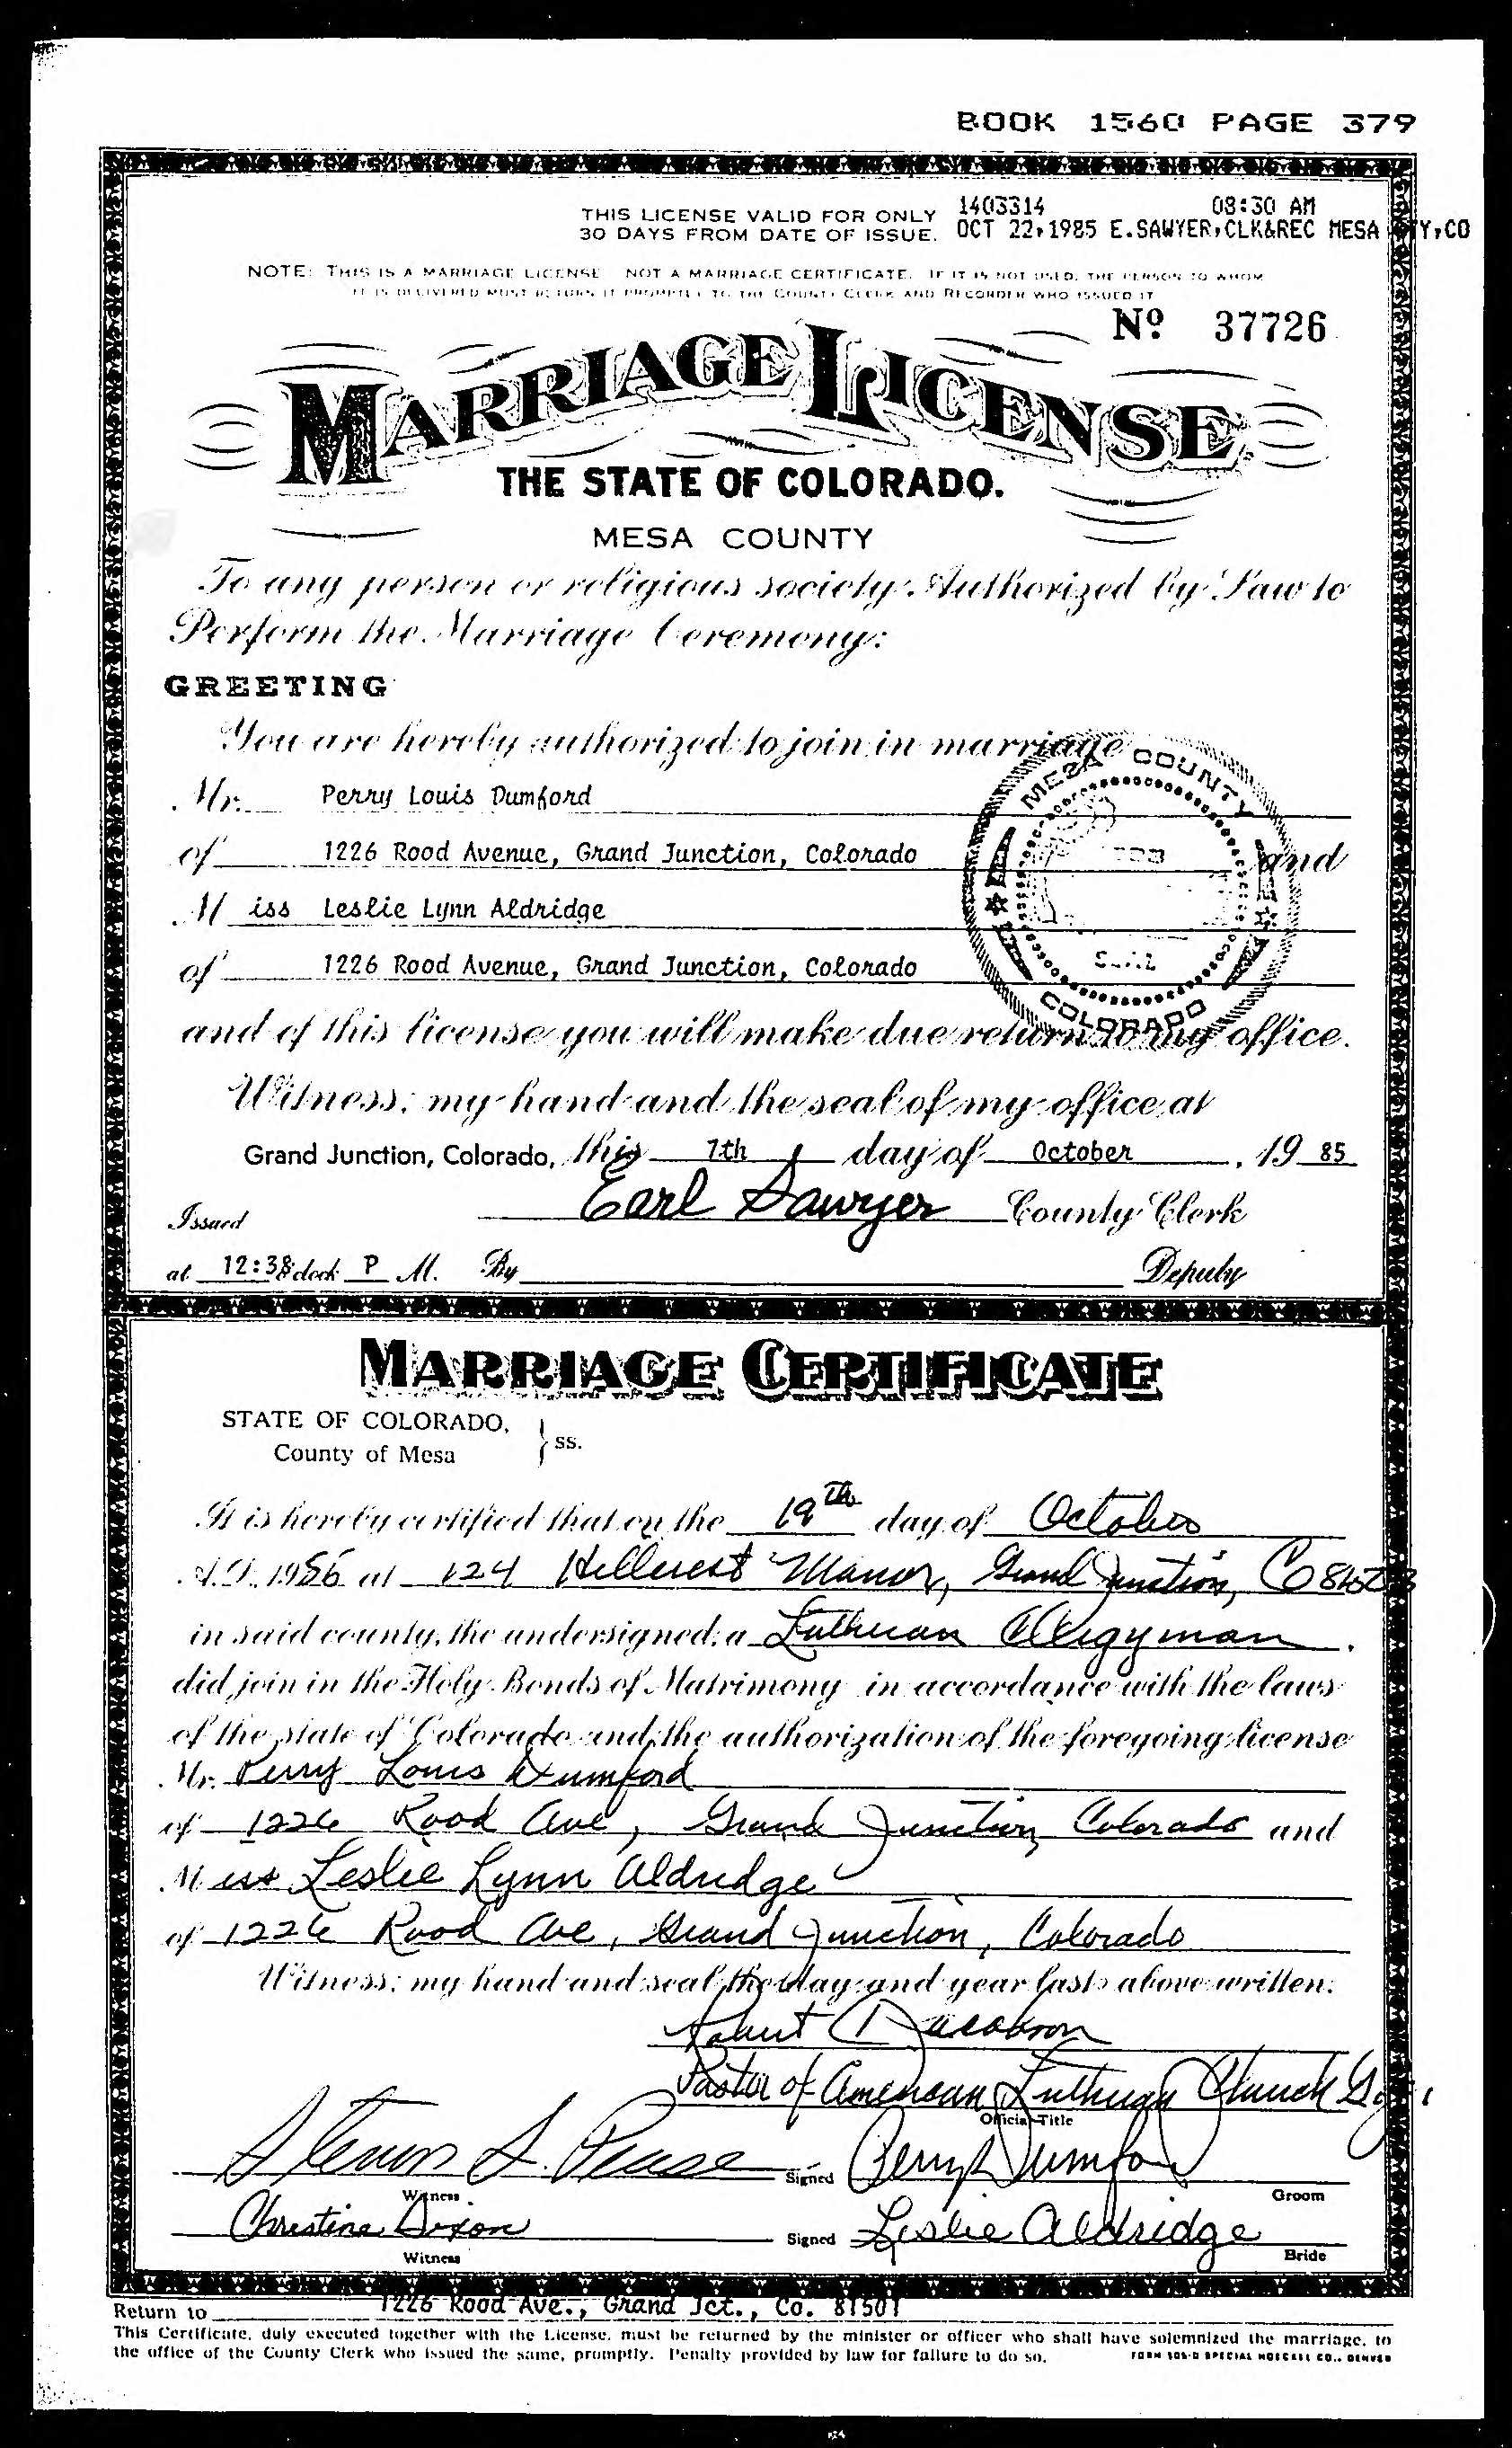 BOOK 1560 PAGE 379
THIS LICENSE VALID FOR ONLY 1403314 08:30 AM
30 DAYS FROM DATE OF ISSUE. OCT 22,1985 E.SAWYER,CLK&REC MESA TY,CO
NOTE: THIS IS A MARRIAGE LICENSE NOT A MARRIAGE CERTIFICATE. IF IT IS NOT USED, THE PERSON TO WHOM
IT IS DELIVERED MUST RETURN IT PROMPTLY TO THE COUNTY CLERK AND RECORDER WHO ISSUED IT
Nº 37726
MARRIAGE LICENSE
THE STATE OF COLORADO.
MESA COUNTY
To any person or religious society Authorized by Law to
Perform the Marriage Ceremony:
GREETING
You are hereby authorized to join in marriage
Mr. Perry Louis Dumford
of 1226 Rood Avenue, Grand Junction, Colorado and
Miss Leslie Lynn Aldridge
of 1226 Rood Avenue, Grand Junction, Colorado
MESA COUNTY
COLORADO
and of this license you will make due return to my office.
Witness, my hand and the seal of my office at
Grand Junction, Colorado, this 7th day of October, 19 85
Earl Sawyer County Clerk
Issued
at 12:38 o'clock P M. By Deputy
MARRIAGE CERTIFICATE
STATE OF COLORADO,
County of Mesa } ss.
It is hereby certified that on the 19th day of October
A.D. 19 at 124 Hillcrest Manor, Grand Junction, CO
in said county, the undersigned, a Lutheran Clergyman
did join in the Holy Bonds of Matrimony in accordance with the laws
of the state of Colorado and the authorization of the foregoing license
Mr. Perry Louis Dumford
of 1226 Rood Ave, Grand Junction, Colorado and
Miss Leslie Lynn Aldridge
of 1226 Rood Ave, Grand Junction, Colorado
Witness: my hand and seal the day and year last above written.
Robert Jacobson
Pastor of American Lutheran Church
Official Title
Signed Perry Dumford
Witness Groom
Christine Dixon Signed Leslie Aldridge
Witness Bride
Return to 1226 Rood Ave., Grand Jct., Co. 81501
This Certificate, duly executed together with the License, must be returned by the minister or officer who shall have solemnized the marriage, to
the office of the County Clerk who issued the same, promptly. Penalty provided by law for failure to do so.